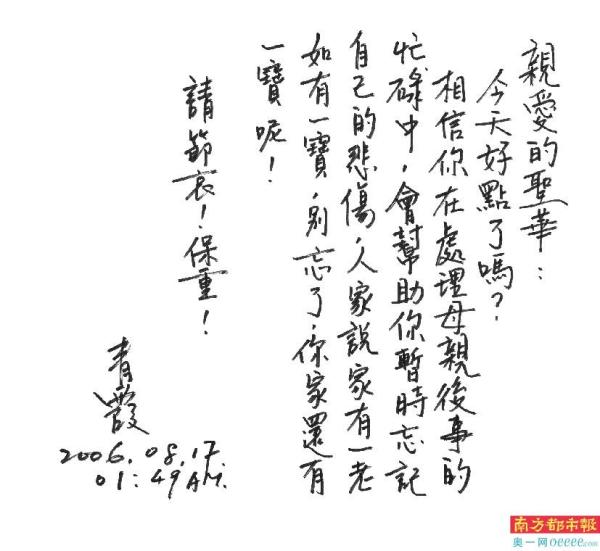 親愛的聖華：
今天好點了嗎？
相信你在處理母親後事的
忙碌中，會幫助你暫時忘記
自己的悲傷，人家說家有一老
如有一寶，別忘了，你家還有
一寶呢！
請節哀！保重！
青霞
2006.08.17
01:49 AM.
南方都市報
奥一网oeeee.com